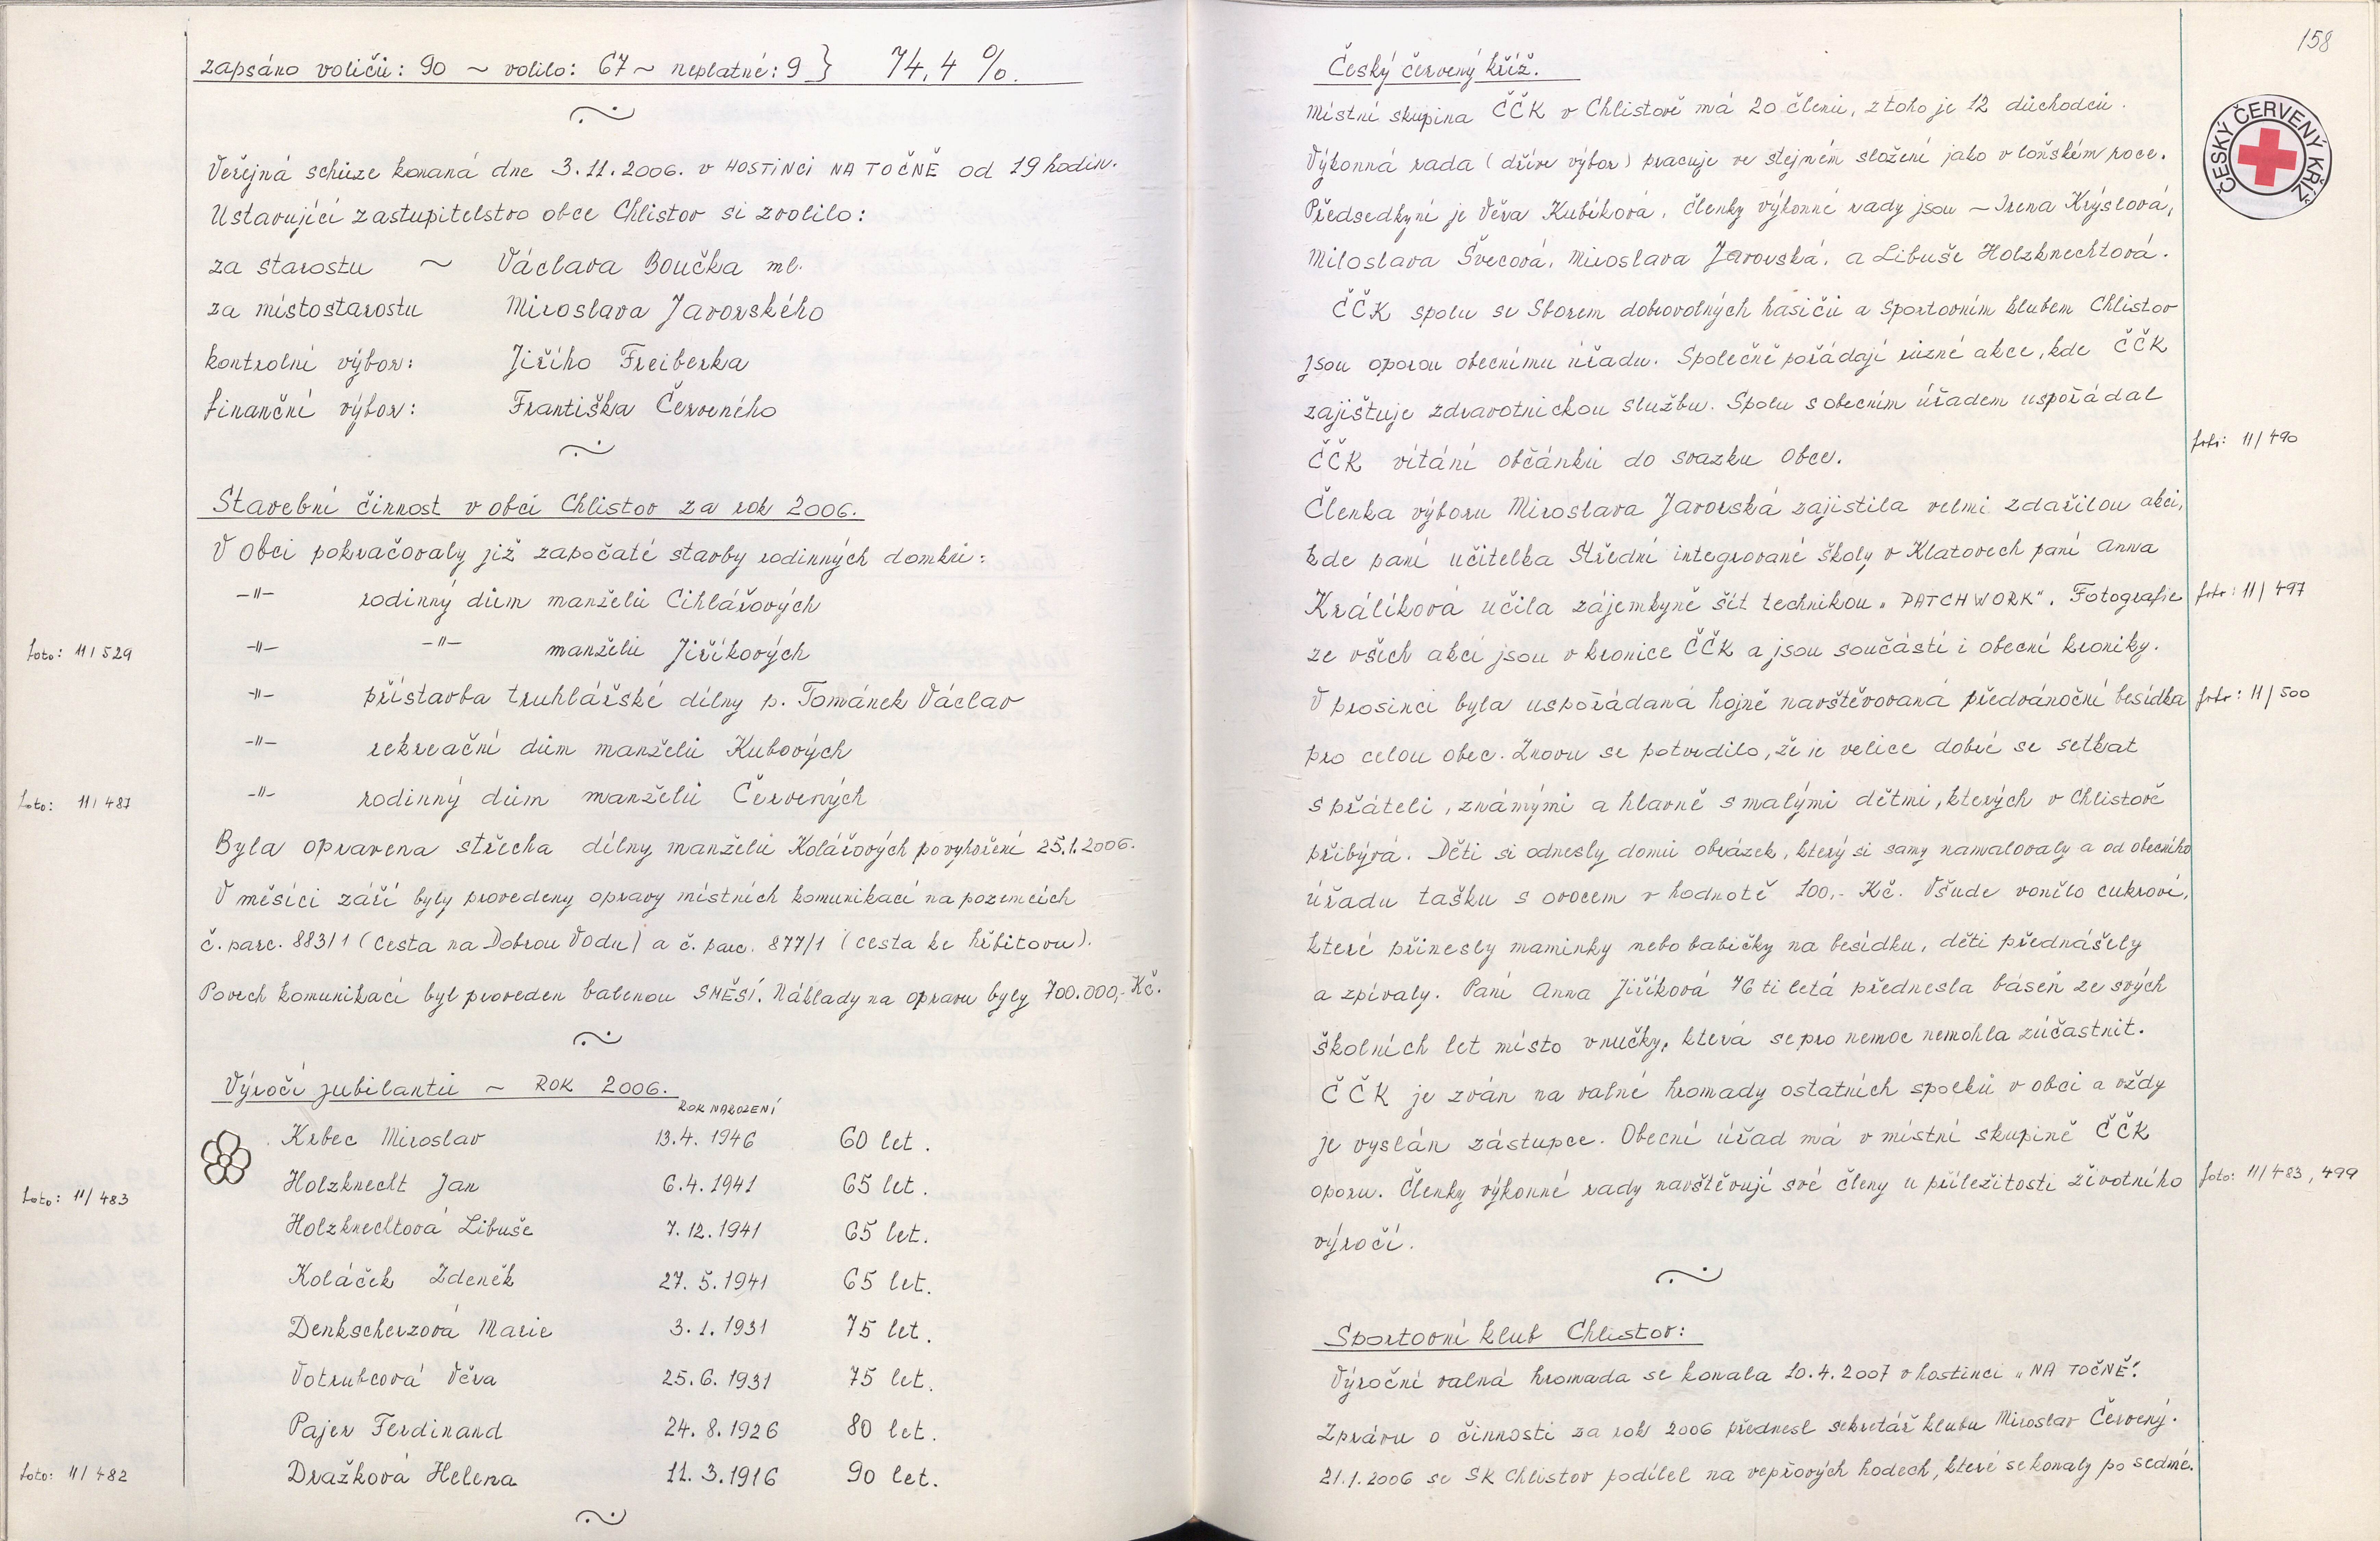 zapsáno voličů: 90 ~ volilo: 67 ~ neplatné: 9 } 74,4 %.
Veřejná schůze konaná dne 3.11.2006. v HOSTINCI NA TOČNĚ od 19 hodin.
Ustavující zastupitelstvo obce Chlistov si zvolilo:
za starostu ~ Václava Boučka ml.
za místostarostu Miroslava Javorského
kontrolní výbor: Jiřího Freiberka
finanční výbor: Františka Červeného
Stavební činnost v obci Chlistov za rok 2006.
V obci pokračovaly již započaté stavby rodinných domků:
-"- rodinný dům manželů Cihlářových
foto: 11/529
-"- -"- manželů Jiříkových
-"- přístavba truhlářské dílny p. Tománek Václav
-"- rekreační dům manželů Kubových
foto: 11/487
-"- rodinný dům manželů Červených
Byla opravena střecha dílny manželů Kolářových po vyhoření 25.1.2006.
V měsíci září byly provedeny opravy místních komunikací na pozemcích
č. parc. 883/1 (cesta na Dobrou Vodu) a č. parc. 877/1 (cesta ke hřbitovu).
Povrch komunikací byl proveden balenou SMĚSÍ. Náklady na opravu byly 700.000,- Kč.
Výročí jubilantů ~ ROK 2006.
ROK NAROZENÍ
Krbec Miroslav 13.4. 1946 60 let.
foto: 11/483
Holzknecht Jan 6.4. 1941 65 let.
Holzknechtová Libuše 7.12.1941 65 let.
Koláček Zdeněk 27. 5.1941 65 let.
Denkscherzová Marie 3.1.1931 75 let.
Votrubcová Věra 25.6. 1931 75 let.
Pajer Ferdinand 24. 8.1926 80 let.
foto: 11/482
Dražková Helena 11. 3.1916 90 let.
158
ČESKÝ ČERVENÝ KŘÍŽ
Český červený kříž.
Místní skupina ČČK v Chlistově má 20 členů, z toho je 12 důchodců.
Výkonná rada (dříve výbor) pracuje ve stejném složení jako v loňském roce.
Předsedkyní je Věra Kubíková, členky výkonné rady jsou ~ Irena Krýslová,
Miloslava Švecová, Miroslava Javorská, a Libuše Holzknechtová.
ČČK spolu se Sborem dobrovolných hasičů a Sportovním klubem Chlistov
jsou oporou obecnímu úřadu. Společně pořádají různé akce, kde ČČK
zajištuje zdravotnickou službu. Spolu s obecním úřadem uspořádal
ČČK vítání občánků do svazku obce.
foto: 11/490
Členka výboru Miroslava Javorská zajistila velmi zdařilou akci,
kde paní učitelka Střední integrované školy v Klatovech paní Anna
Králíková učila zájemkyně šít technikou „PATCHWORK". Fotografie
foto: 11/497
ze všech akcí jsou v kronice ČČK a jsou součástí i obecní kroniky.
V prosinci byla uspořádaná hojně navštěvovaná předvánoční besídka
foto: 11/500
pro celou obec. Znovu se potvrdilo, že je velice dobré se setkat
s přáteli, známými a hlavně s malými dětmi, kterých v Chlistově
přibývá. Děti si odnesly domů obrázek, který si samy namalovaly a od obecního
úřadu tašku s ovocem v hodnotě 100,- Kč. Všude vonělo cukroví,
které přinesly maminky nebo babičky na besídku, děti přednášely
a zpívaly. Paní Anna Jiříková 76 ti letá přednesla báseň ze svých
školních let místo vnučky, která se pro nemoc nemohla zúčastnit.
ČČK je zván na valné hromady ostatních spolků v obci a vždy
je vyslán zástupce. Obecní úřad má v místní skupině ČČK
oporu. Členky výkonné rady navštěvují své členy u příležitosti životního
foto: 11/483, 499
výročí.
Sportovní klub Chlistov:
Výroční valná hromada se konala 10.4.2007 v hostinci „NA TOČNĚ".
Zprávu o činnosti za rok 2006 přednesl sekretář klubu Miroslav Červený.
21.1.2006 se SK Chlistov podílel na vepřových hodech, které se konaly po sedmé.